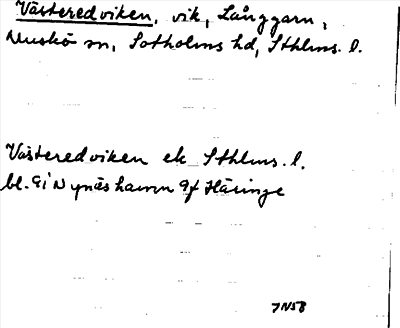 Västeredviken, vik, Långgarn,
Muskö sn, Sotholms hd, Sthlms. l.
Västeredviken ek Sthlms. l.
bl. 9i Nynäshamn 9f Häringe
7N58